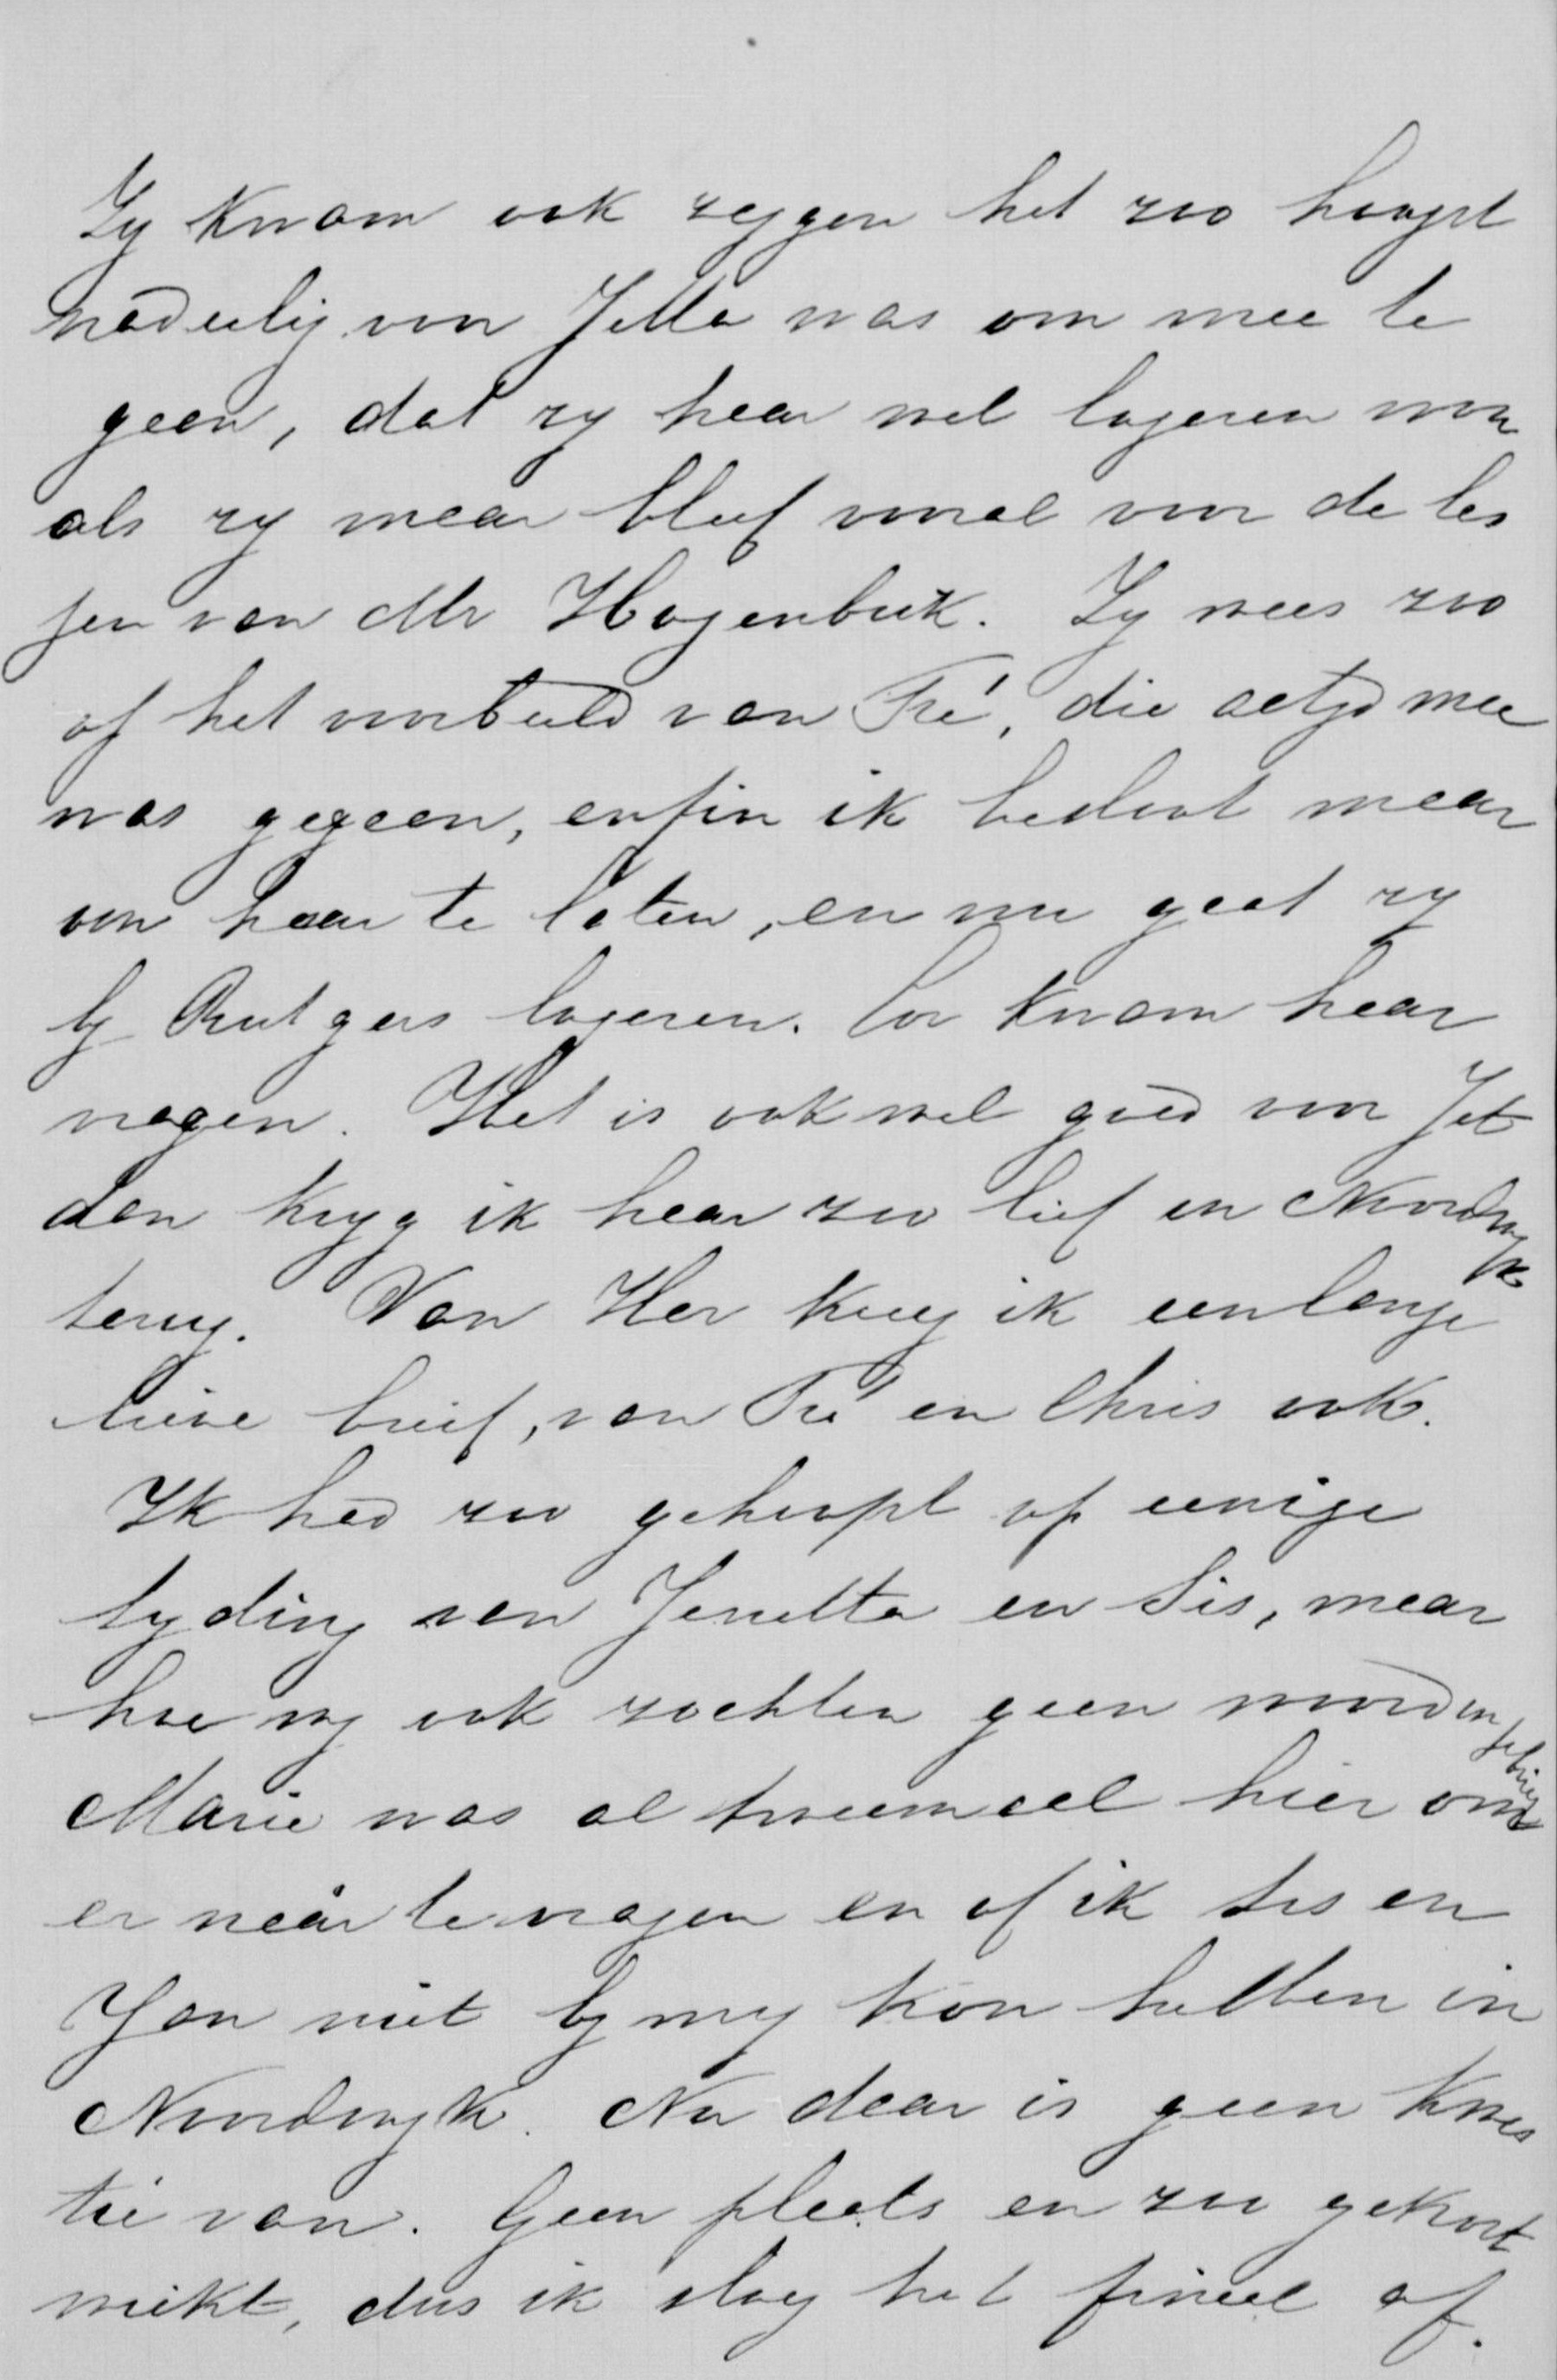 Zy kwam ook zeggen het zoo hoogst
nadeelig voor Jetta was om mee te
gaan, dat zy haar wel logeren wou
als zy maar bleef vooral voor de les
sen van Mr Hogenbirk. Zy wees zoo
op het voorbeeld van Fré, die altyd mee
was gegaan, enfin ik besloot maar
von haar te laten, en nu gaat zy
by Rutgers logeren. Cor kwam haar
vragen. Het is ook wel goed voor Jet
dan kryg ik haar zoo lief in Noordwyk
terug. Van Her kreeg ik een lange
lieve brief, van Fré en Chris ook.
Ik had zoo gehoopt op eenige
tyding van Jennetta en Sis, maar
hoe wy ook zochten geen woord
Marie was al tweemaal hier om
er naar te vragen en of ik Sis en
Jan niet by my kon hebben in
Noordwyk. Nu daar is geen kwes
tie van. Geen plaats en zoo gekort
wiekt, dus ik sloeg het finaal af.